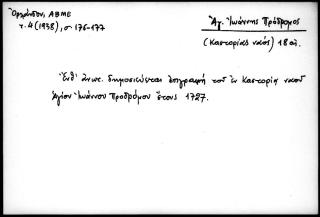 Ὀρλάνδου, ΑΒΜΕ
τ. 4 (1938), σ. 176-177
Ἁγ. Ἰωάννης Πρόδρομος
(Καστοριᾶς ναός) 18 αἰ.
Ἔνθ' ἀνωτ. δημοσιεύεται ἐπιγραφή τοῦ ἐν Καστορίᾳ ναοῦ
Ἁγίου Ἰωάννου Προδρόμου ἔτους 1727.